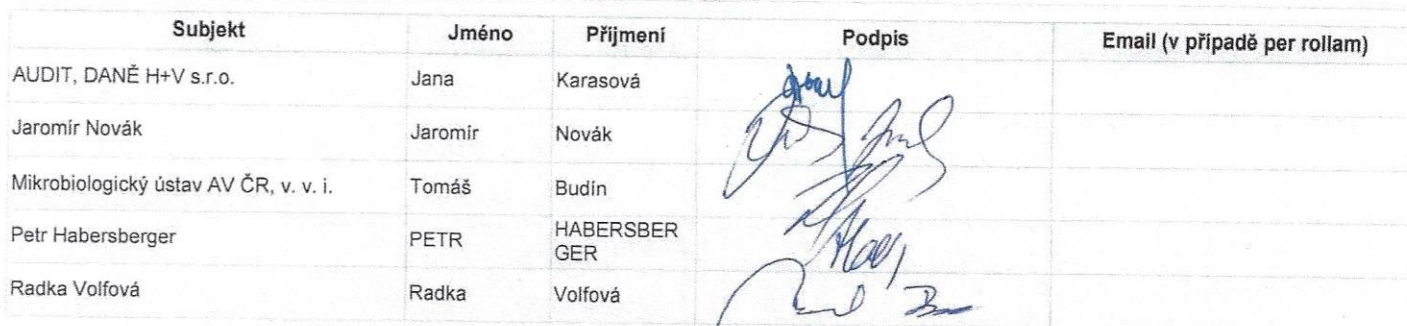 Subjekt Jméno Příjmení Podpis Email (v případě per rollam)
AUDIT, DANĚ H+V s.r.o. Jana Karasová
Jaromír Novák Jaromír Novák
Mikrobiologický ústav AV ČR, v. v. i. Tomáš Budín
Petr Habersberger PETR HABERSBER
GER
Radka Volfová Radka Volfová